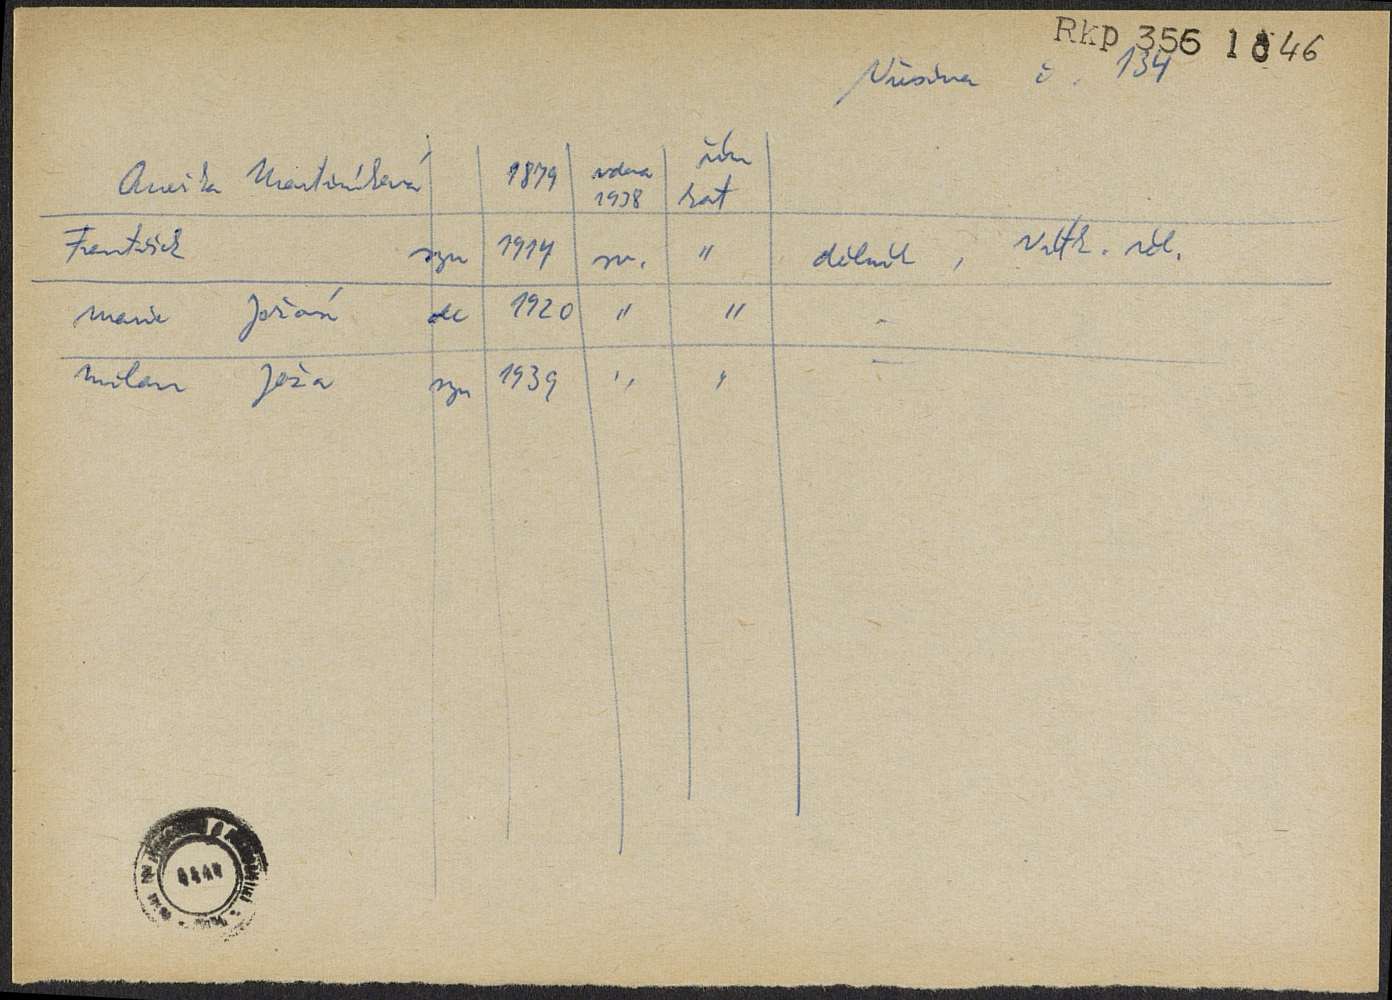 Rkp 356 1846
č. 134
Anežka Martiníková 1879 vdova 1938 řím kat
František syn 1914 sv. " dělník,
Marie Ježová dc 1920 " "
Milan Ježa syn 1939 " "